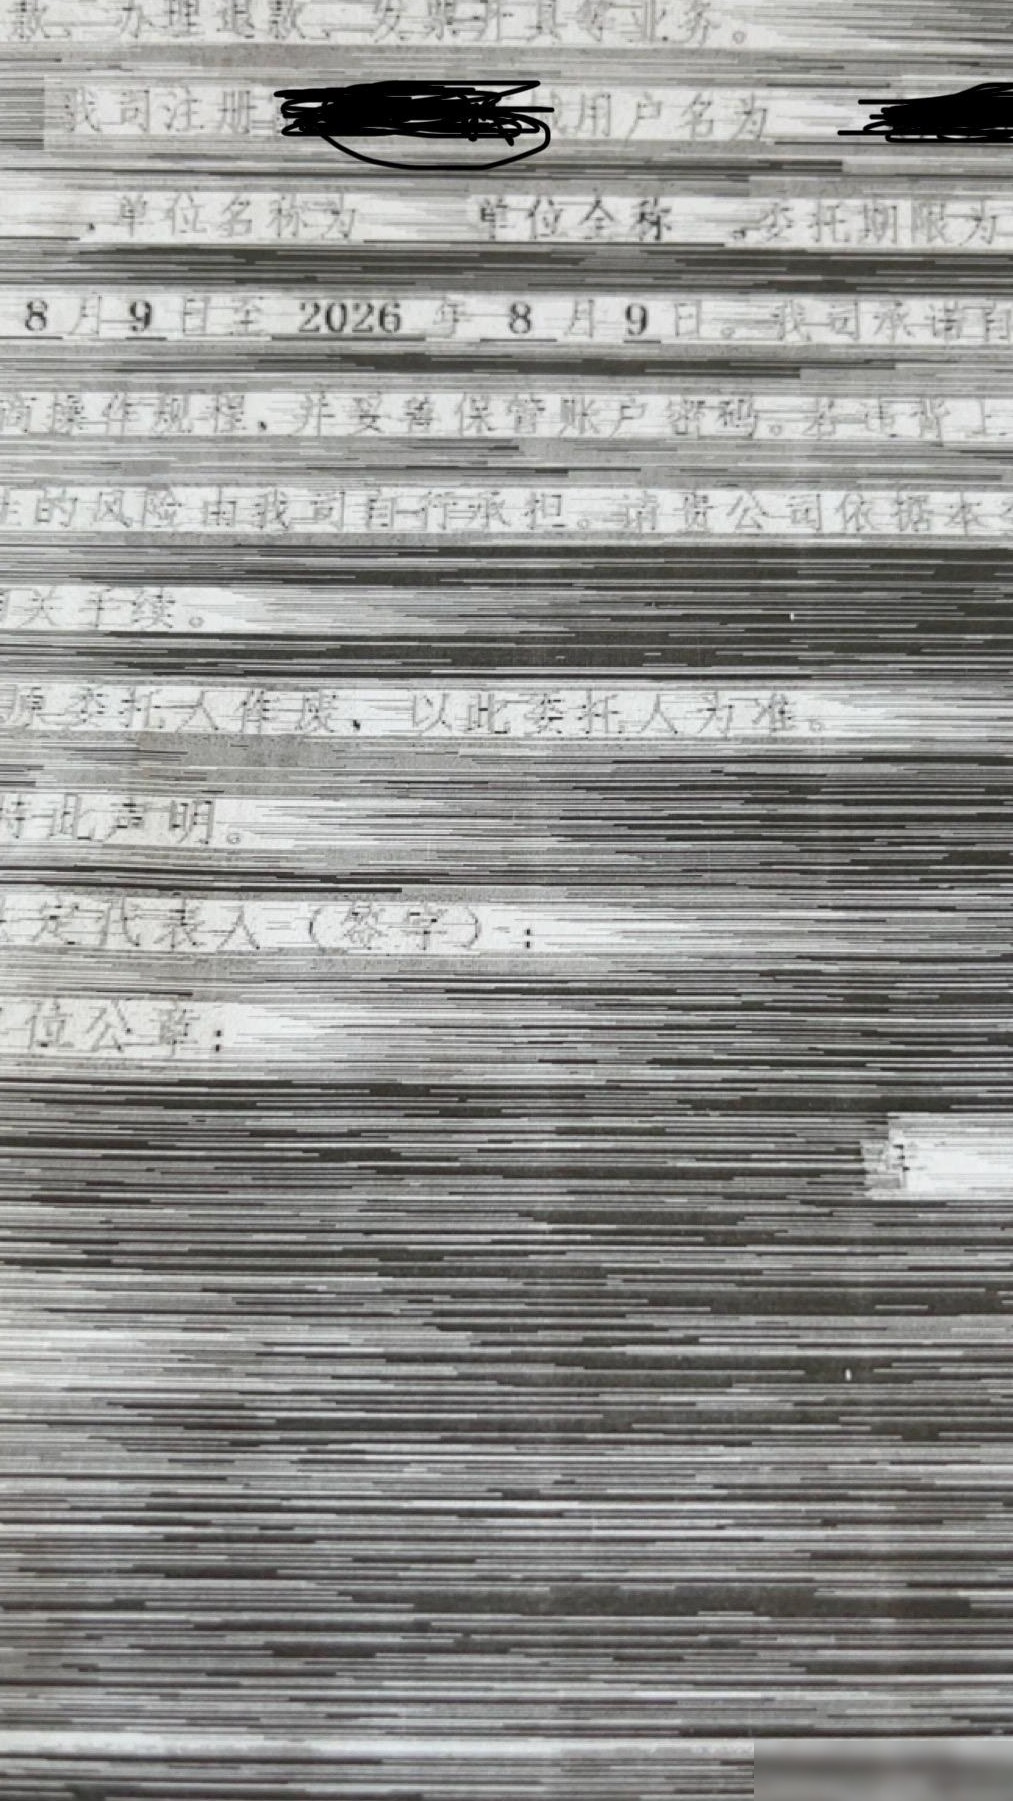 款、办理退款、发票开具等业务。
我司注册 用户名为
，单位名称为 单位全称 。委托期限为
8 月 9 日至 2026 年 8 月 9 日。我司承诺自
商操作规程，并妥善保管账户密码。若违背上
生的风险由我司自行承担。请贵公司依据本
相关手续。
原委托人作废，以此委托人为准。
特此声明。
法定代表人（签字）：
单位公章：